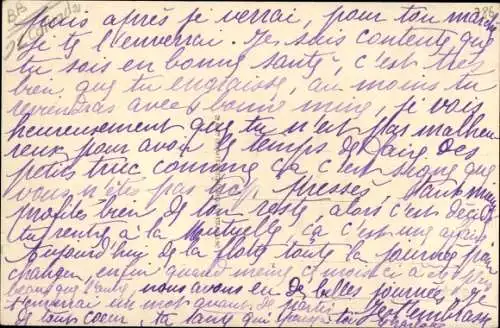 mais après je verrai, pour ton
je te l'enverrai. Je suis contente que
tu sois en bonne santé, c'est très
bien que tu engraisse, au moins tu
reviendras avec bonne mine, je vois
heureusement que tu n'est pas malheu
reux pour avoir le temps de faire des
petits truc comme ça c'est signe que
vous n'êtes pas trop pressés,
profites bien de ton reste alors c'est
tu rentre à la Mutuelle, ça c'est une affaire
Aujourd'hui de la flotte toute la journée pour
changer enfin quand même
beau que l'autre nous avons eu de belles journées je
un mot avant de partir je t'embrasse
de tout coeur, ta tante qui